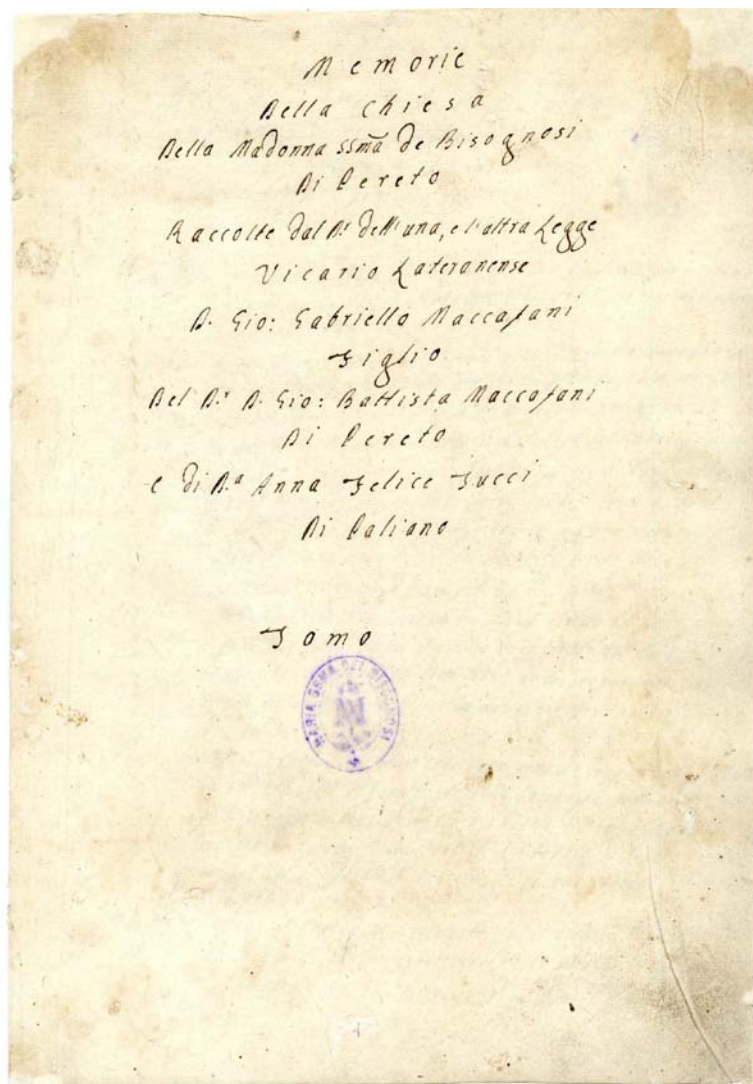 Memorie
Della Chiesa
Della Madonna SSma de Bisognosi
Di Pereto
Raccolte dal Dr dell'una, e l'altra Legge
Vicario Lateranense
D. Gio: Gabriello Maccafani
Figlio
Del Dr D. Gio: Battista Maccafani
Di Pereto
e di Da Anna Felice Tucci
Di Paliano
Tomo
MARIA SSMA DEI BISOGNOSI